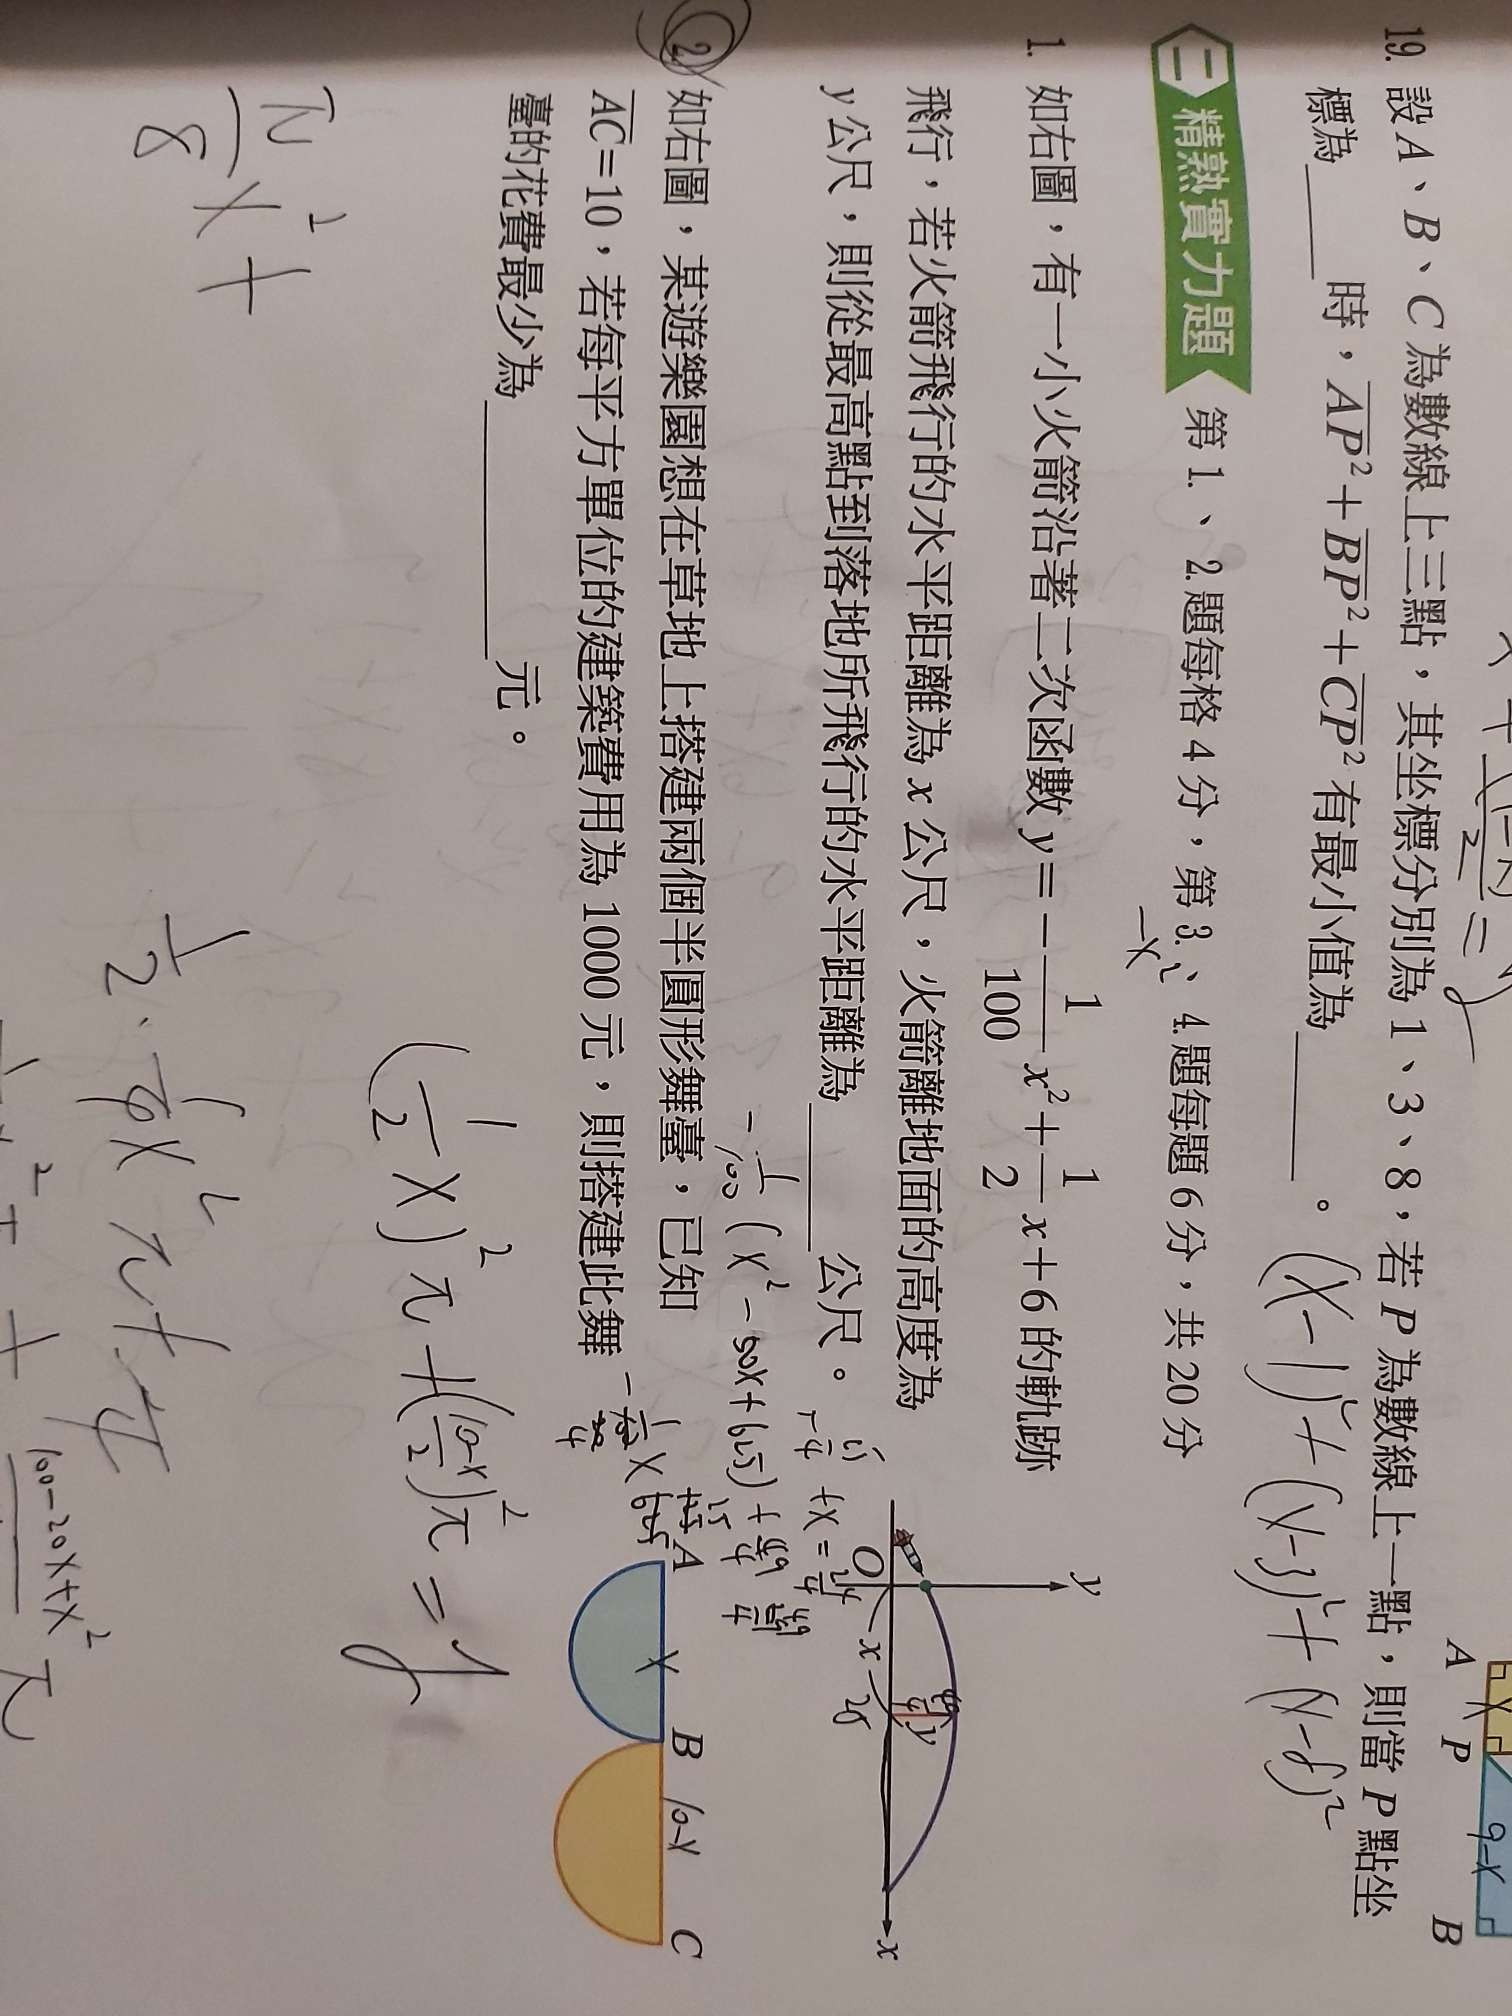 19. 設 A、B、C 為數線上三點，其坐標分別為 1、3、8，若 P 為數線上一點，則當 P 點坐
標為______時，AP²+BP²+CP² 有最小值為______。
(x-1)²+(x-3)²+(x-8)²
A P B
x 9-x
三 精熟實力題 第 1.、2. 題每格 4 分，第 3.、4. 題每題 6 分，共 20 分
1. 如右圖，有一小火箭沿著二次函數 y=-1/100 x²+1/2 x+6 的軌跡
飛行，若火箭飛行的水平距離為 x 公尺，火箭離地面的高度為
y 公尺，則從最高點到落地所飛行的水平距離為______公尺。
y
O x x
y
25
-1/100 (x²-50x+625)+
2. 如右圖，某遊樂園想在草地上搭建兩個半圓形舞臺，已知
AC=10，若每平方單位的建築費用為 1000 元，則搭建此舞
臺的花費最少為__________元。
A B C
x 10-x
(1/2 x)²π+(10-x/2)²π=y
π/8 x²+
100-20x+x² π